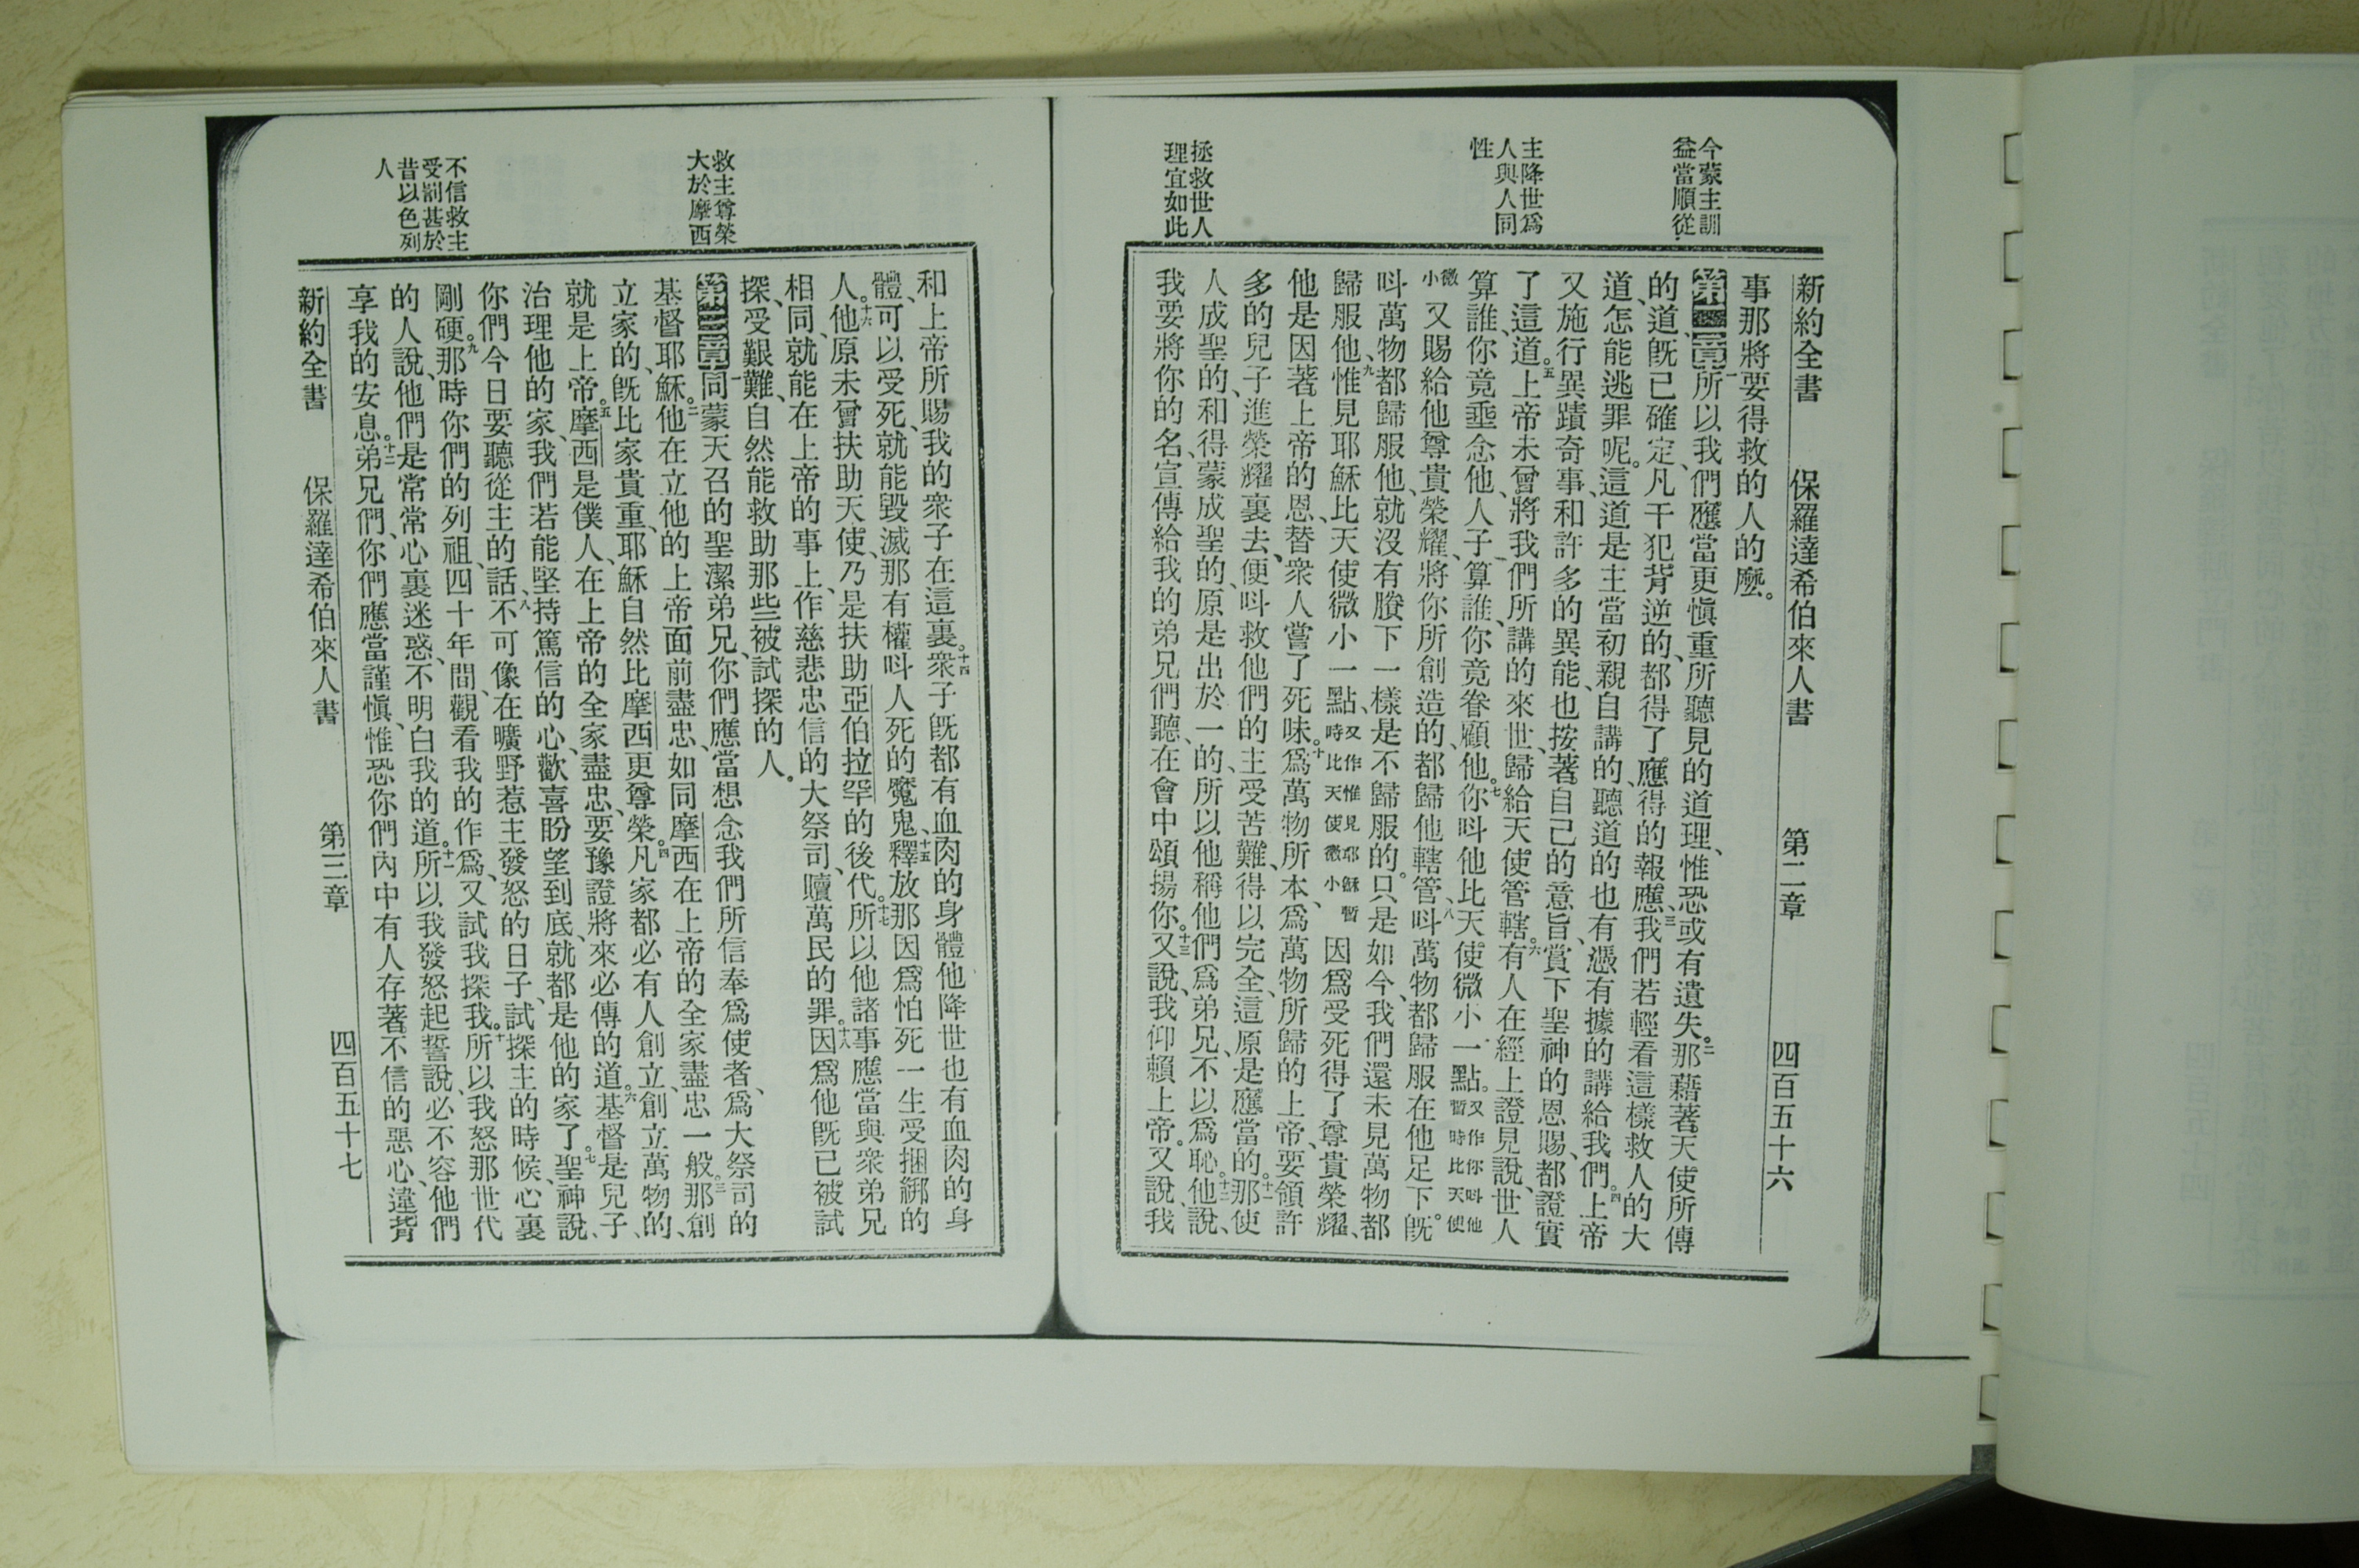 今蒙主訓
益當順從
主降世爲
人與人同
性
拯救世人
理宜如此
新約全書 保羅達希伯來人書 第二章 四百五十六
事那將要得救的人的麼。
第二章一所以我們應當更愼重所聽見的道理、惟恐或有遺失。二那藉著天使所傳
的道、旣已確定、凡干犯背逆的、都得了應得的報應、三我們若輕看這樣救人的大
道、怎能逃罪呢。這道是主當初親自講的、聽道的也有憑有據的講給我們。四上帝
又施行異蹟奇事、和許多的異能、也按著自己的意旨、賞下聖神的恩賜、都證實
了這道。五上帝未曾將我們所講的來世、歸給天使管轄。六有人在經上證見說、世人
算誰、你竟垂念他、人子算誰、你竟眷顧他。七你呌他比天使微小一點。又作你呌他暫時比天使
微小又賜給他尊貴榮耀、將你所創造的、都歸他轄管、八呌萬物、都歸服在他足下。旣
呌萬物都歸服他、就沒有賸下一樣、是不歸服的。只是如今、我們還未見萬物都
歸服他、九惟見耶穌比天使微小一點又作惟見耶穌暫時比天使微小因爲受死得了尊貴榮耀、
他是因著上帝的恩、替衆人嘗了死味。十爲萬物所本、爲萬物所歸的上帝、要領許
多的兒子、進榮耀裏去、便呌救他們的主受苦難、得以完全、這原是應當的。十一那使
人成聖的、和得蒙成聖的、原是出於一的、所以他稱他們爲弟兄、不以爲恥。十二他說、
我要將你的名、宣傳給我的弟兄們聽、在會中頌揚你。十三又說、我仰賴上帝。又說、我
救主尊榮
大於摩西
不信救主
受罰甚於
昔以色列
人
和上帝所賜我的衆子在這裏。十四衆子旣都有血肉的身體、他降世也有血肉的身
體、可以受死、就能毀滅那有權呌人死的魔鬼、十五釋放那因爲怕死一生受捆綁的
人。十六他原未曾扶助天使、乃是扶助亞伯拉罕的後代。十七所以他諸事應當與衆弟兄
相同、就能在上帝的事上、作慈悲忠信的大祭司、贖萬民的罪。十八因爲他旣已被試
探、受艱難、自然能救助那些被試探的人。
第三章一同蒙天召的聖潔弟兄、你們應當想念我們所信奉爲使者、爲大祭司的
基督耶穌。二他在立他的上帝面前盡忠、如同摩西在上帝的全家盡忠一般。三那創
立家的、旣比家貴重、耶穌自然比摩西更尊榮。四凡家都必有人創立、創立萬物的、
就是上帝。五摩西是僕人、在上帝的全家盡忠、要豫證將來必傳的道。六基督是兒子、
治理他的家、我們若能堅持篤信的心、歡喜盼望到底、就都是他的家了。七聖神說、
你們今日要聽從主的話、八不可像在曠野惹主發怒的日子、試探主的時候、心裏
剛硬。九那時你們的列祖、四十年間、觀看我的作爲、又試我探我。十所以我怒那世代
的人說、他們是常常心裏迷惑、不明白我的道。十一所以我發怒起誓說、必不容他們
享我的安息。十二弟兄們、你們應當謹愼、惟恐你們內中有人存著不信的惡心、違背
新約全書 保羅達希伯來人書 第三章 四百五十七